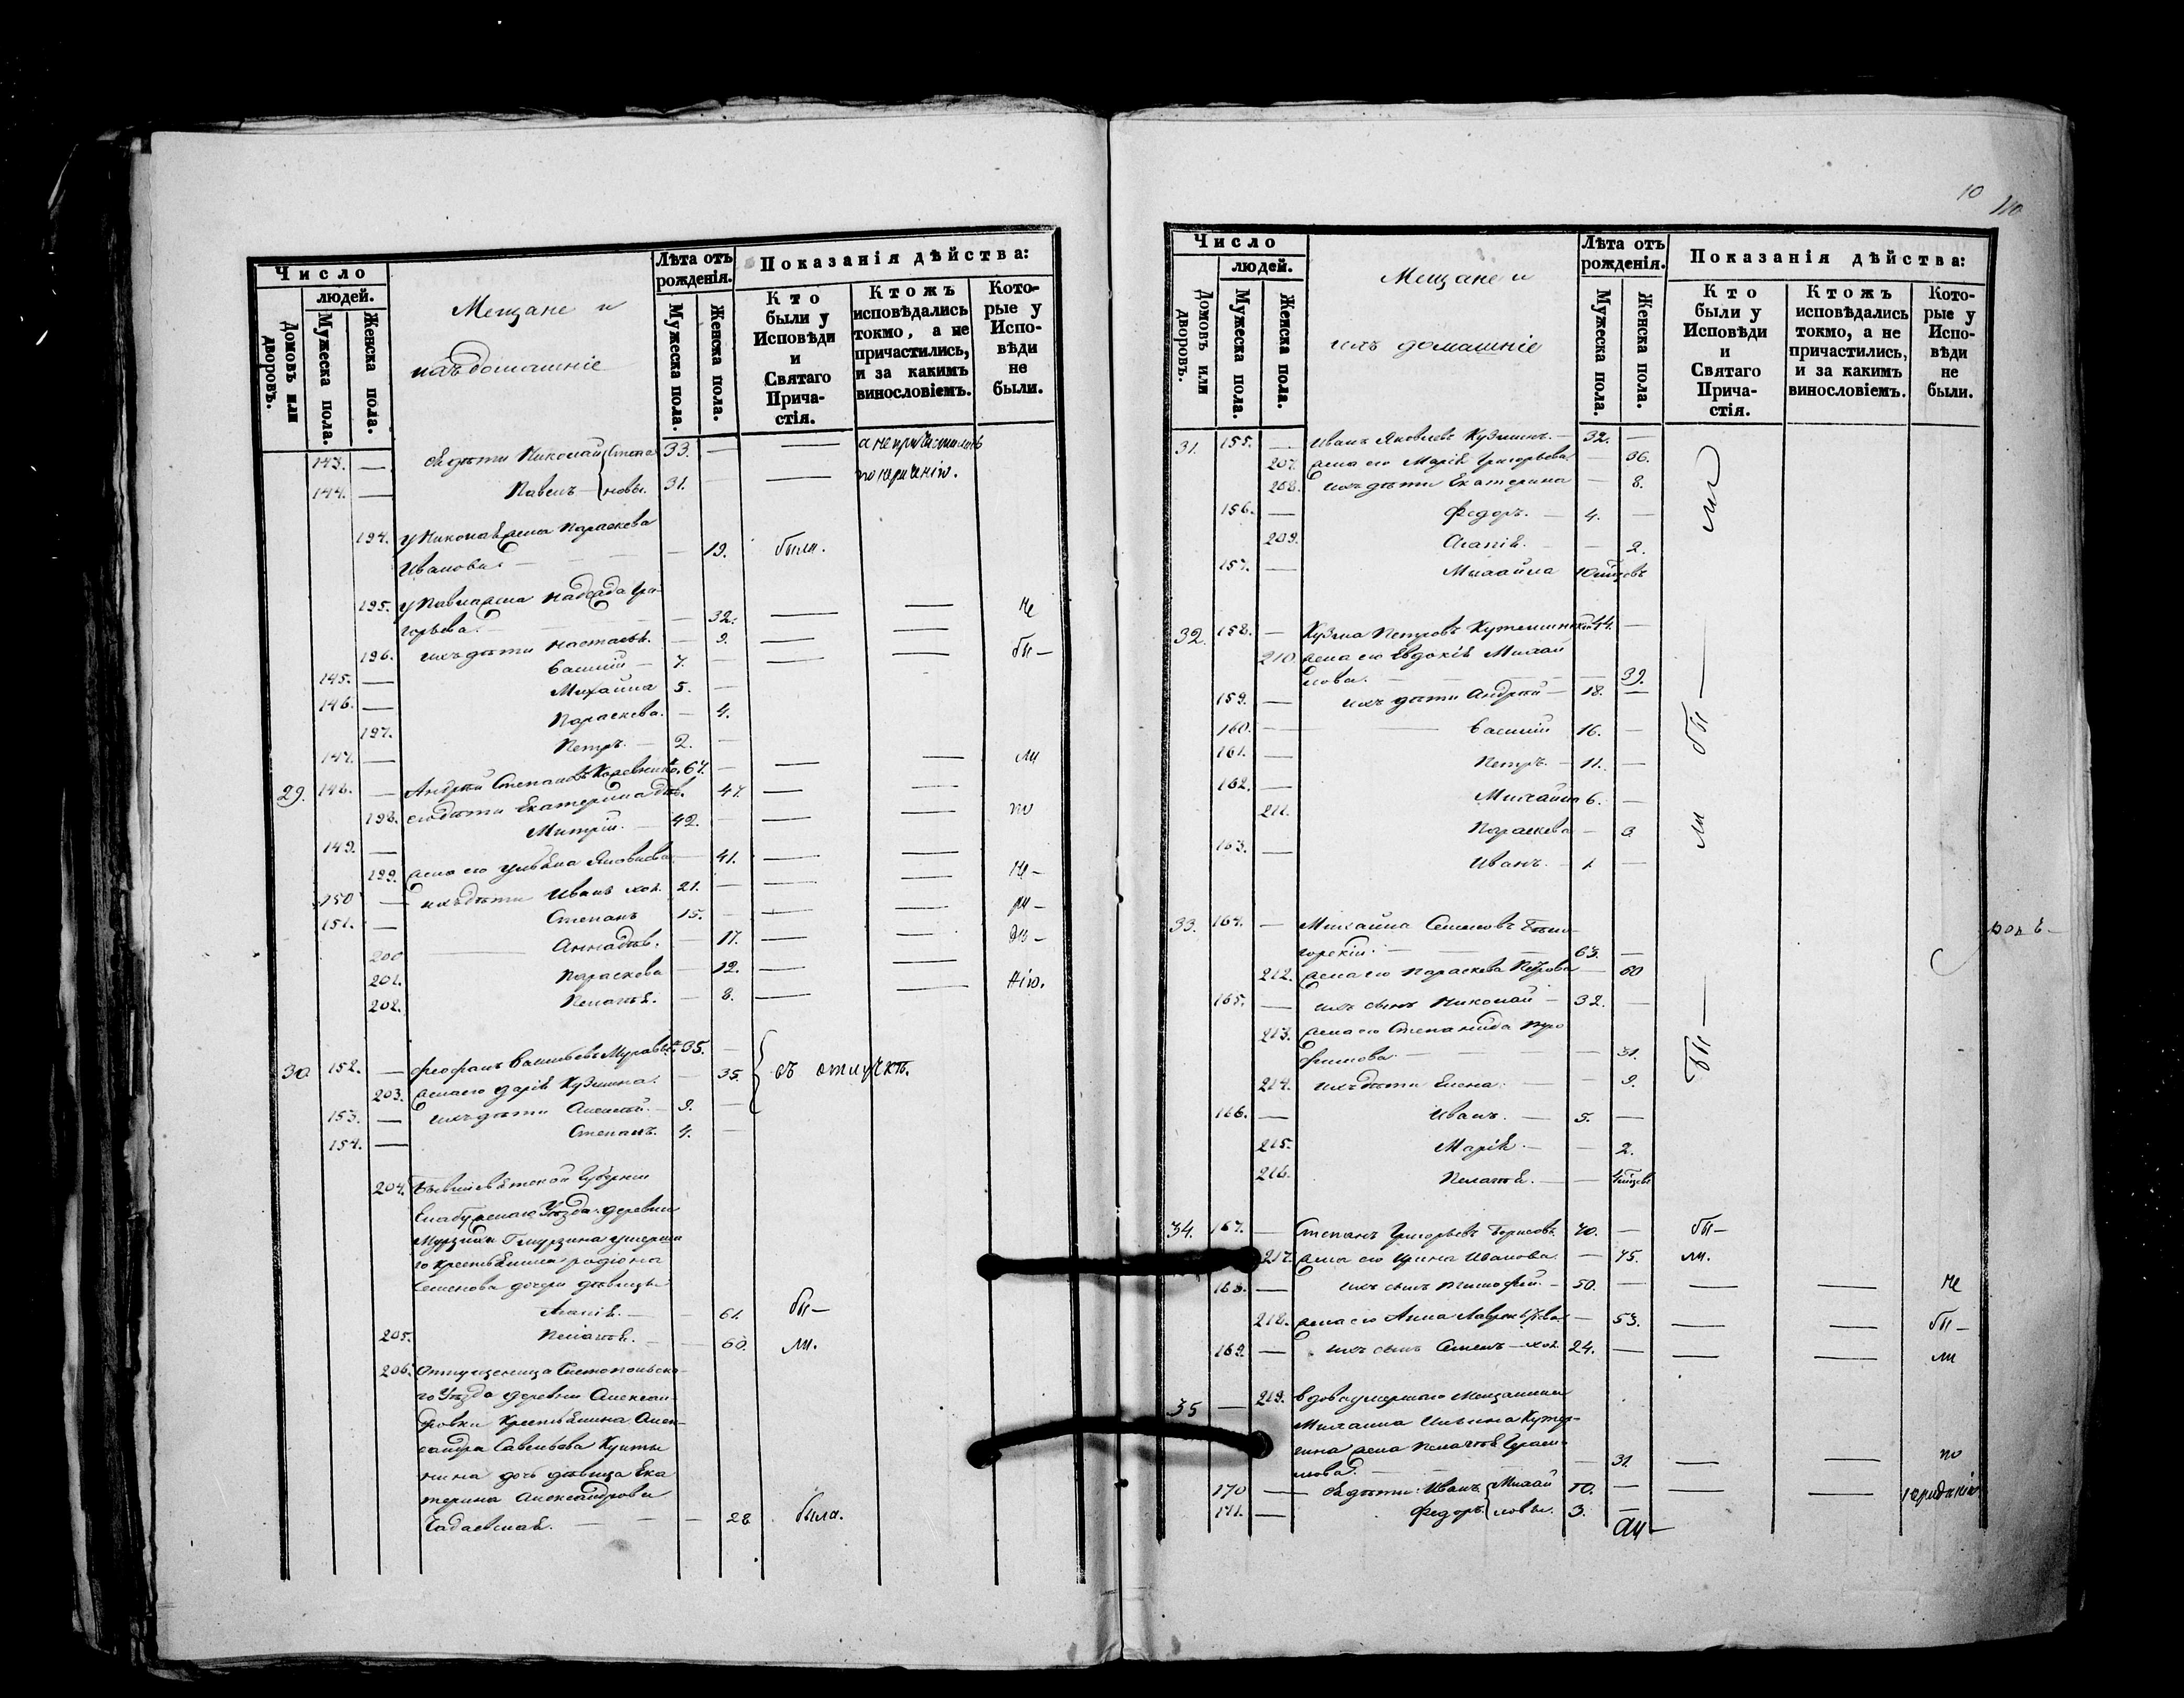 Число
людей.
Домовъ или дворовъ.
Мужеска пола.
Женска пола.
Мещане и
ихъ домашніе
Лѣта отъ рожденія.
Мужеска пола.
Женска пола.
Показанія дѣйства:
Кто были у Исповѣди и Святаго Причастія.
Ктожъ исповѣдались токмо, а не причастились, и за какимъ винословіемъ.
Которые у Исповѣди не были.
143. — Ея дѣти Николай Степа 33. — — а не причастились
144. — Павелъ — новы. 31. — — по нерченію.
194. у Николая жена Параскева
Иванова — — 19. были.
195. у Павла жена Надежда Гри-
горьева. — 32. — — не
196. ихъ дѣти Настасья. — 9. — — бы-
145. — Василій — 7. — — —
146. — Михайла 5. —
197. Параскева. — 4.
147. — Петръ. — 2. —
29. 148. — Андрей Степановъ 67. — — — ли
198. его дѣти Екатерина дѣв. 47. — —
149. — Митрій. — 42. — — — по
199. жена его Ульяна Яковлева. — 41. — —
150 — ихъ дѣти Иванъ хол. 21. — — — не-
151. — Степанъ 15. — — — ра-
200 — Анна дѣв. — 17. — — дѣ-
201. Параскева — 12. — —
202. Пелагѣя. — 8. — — нію.
30 152. — Феофанъ Васильевъ 35. —
203. жена его Дарія Кузмина. — 35. въ отлучкѣ.
153. — ихъ дѣти Алексѣй. — 9. —
154. — Степанъ. 4. —
204. Бывшіе Вятской Губерніи
Елабужскаго Уѣзда деревни
умерша
го крестьянина Радіона
Семенова дочери дѣвицы
Агапія. — — 61. бы-
205. Пелагѣя. — — 60. ли.
206. Отпущенница Чистопольска-
го Уѣзда деревни Алексан-
дровки Крестьянина Алек-
сандра Савельева
нина дочь дѣвица Ека
терина Александрова
Чадаевская. — — — 28 была.
10
110
Число
людей.
Домовъ или дворовъ.
Мужеска пола.
Женска пола.
Мещане и
ихъ домашніе
Лѣта отъ рожденія.
Мужеска пола.
Женска пола.
Показанія дѣйства:
Кто были у Исповѣди и Святаго Причастія.
Ктожъ исповѣдались токмо, а не причастились, и за какимъ винословіемъ.
Которые у Исповѣди не были.
31. 155. — Иванъ Яковлевъ Кузминъ. — 32. —
207. жена его Марія Григорьева. — 36.
208. ихъ дѣти Екатерина — 8.
156. — Федоръ. — 4. —
209. Агапія. — — 2.
157. — Михайла 10 мѣсцовъ
32. 158. — Кузма Петровъ 44. —
210. жена его Евдокія Михай
лова. — — — 39.
159. — ихъ дѣти Андрей — 18. —
160. — Василій 16. —
161. — Петръ. — 11. —
162. — Михайла 6. —
211. Параскева — 3
163. — Иванъ. — 1 —
33. 164. — Михайла Семеновъ Бѣло
горскій. — 63. —
212. жена его Параскева Петрова — 60
165. — ихъ сынъ Николай — 32. —
213. жена его Степанида Тро
фимова — — 31.
214. ихъ дѣти Елена. — — 9.
166. — Иванъ. — 5. —
215. Марія. — — 2.
216. Пелагѣя. — —
34. 167. — Степанъ Григорьевъ Борисовъ. 70. — бы-
217. жена его Ирина Иванова. — 75. ли.
168. — ихъ сынъ Тимофей. — 50. — — — не
218. жена его Анна Лаврентьева — 53. — — бы-
169. — ихъ сынъ Семенъ — хол. 24. — — — ли
35 — 219. Вдова умершаго Мещанина
Михаила Ильина
жена Пелагѣя Гераси-
мова. — — 31. — — по
170 — Ея дѣти: Иванъ Михай 10. — — — нерадѣнію
171. — Федоръ ловы. 3. —